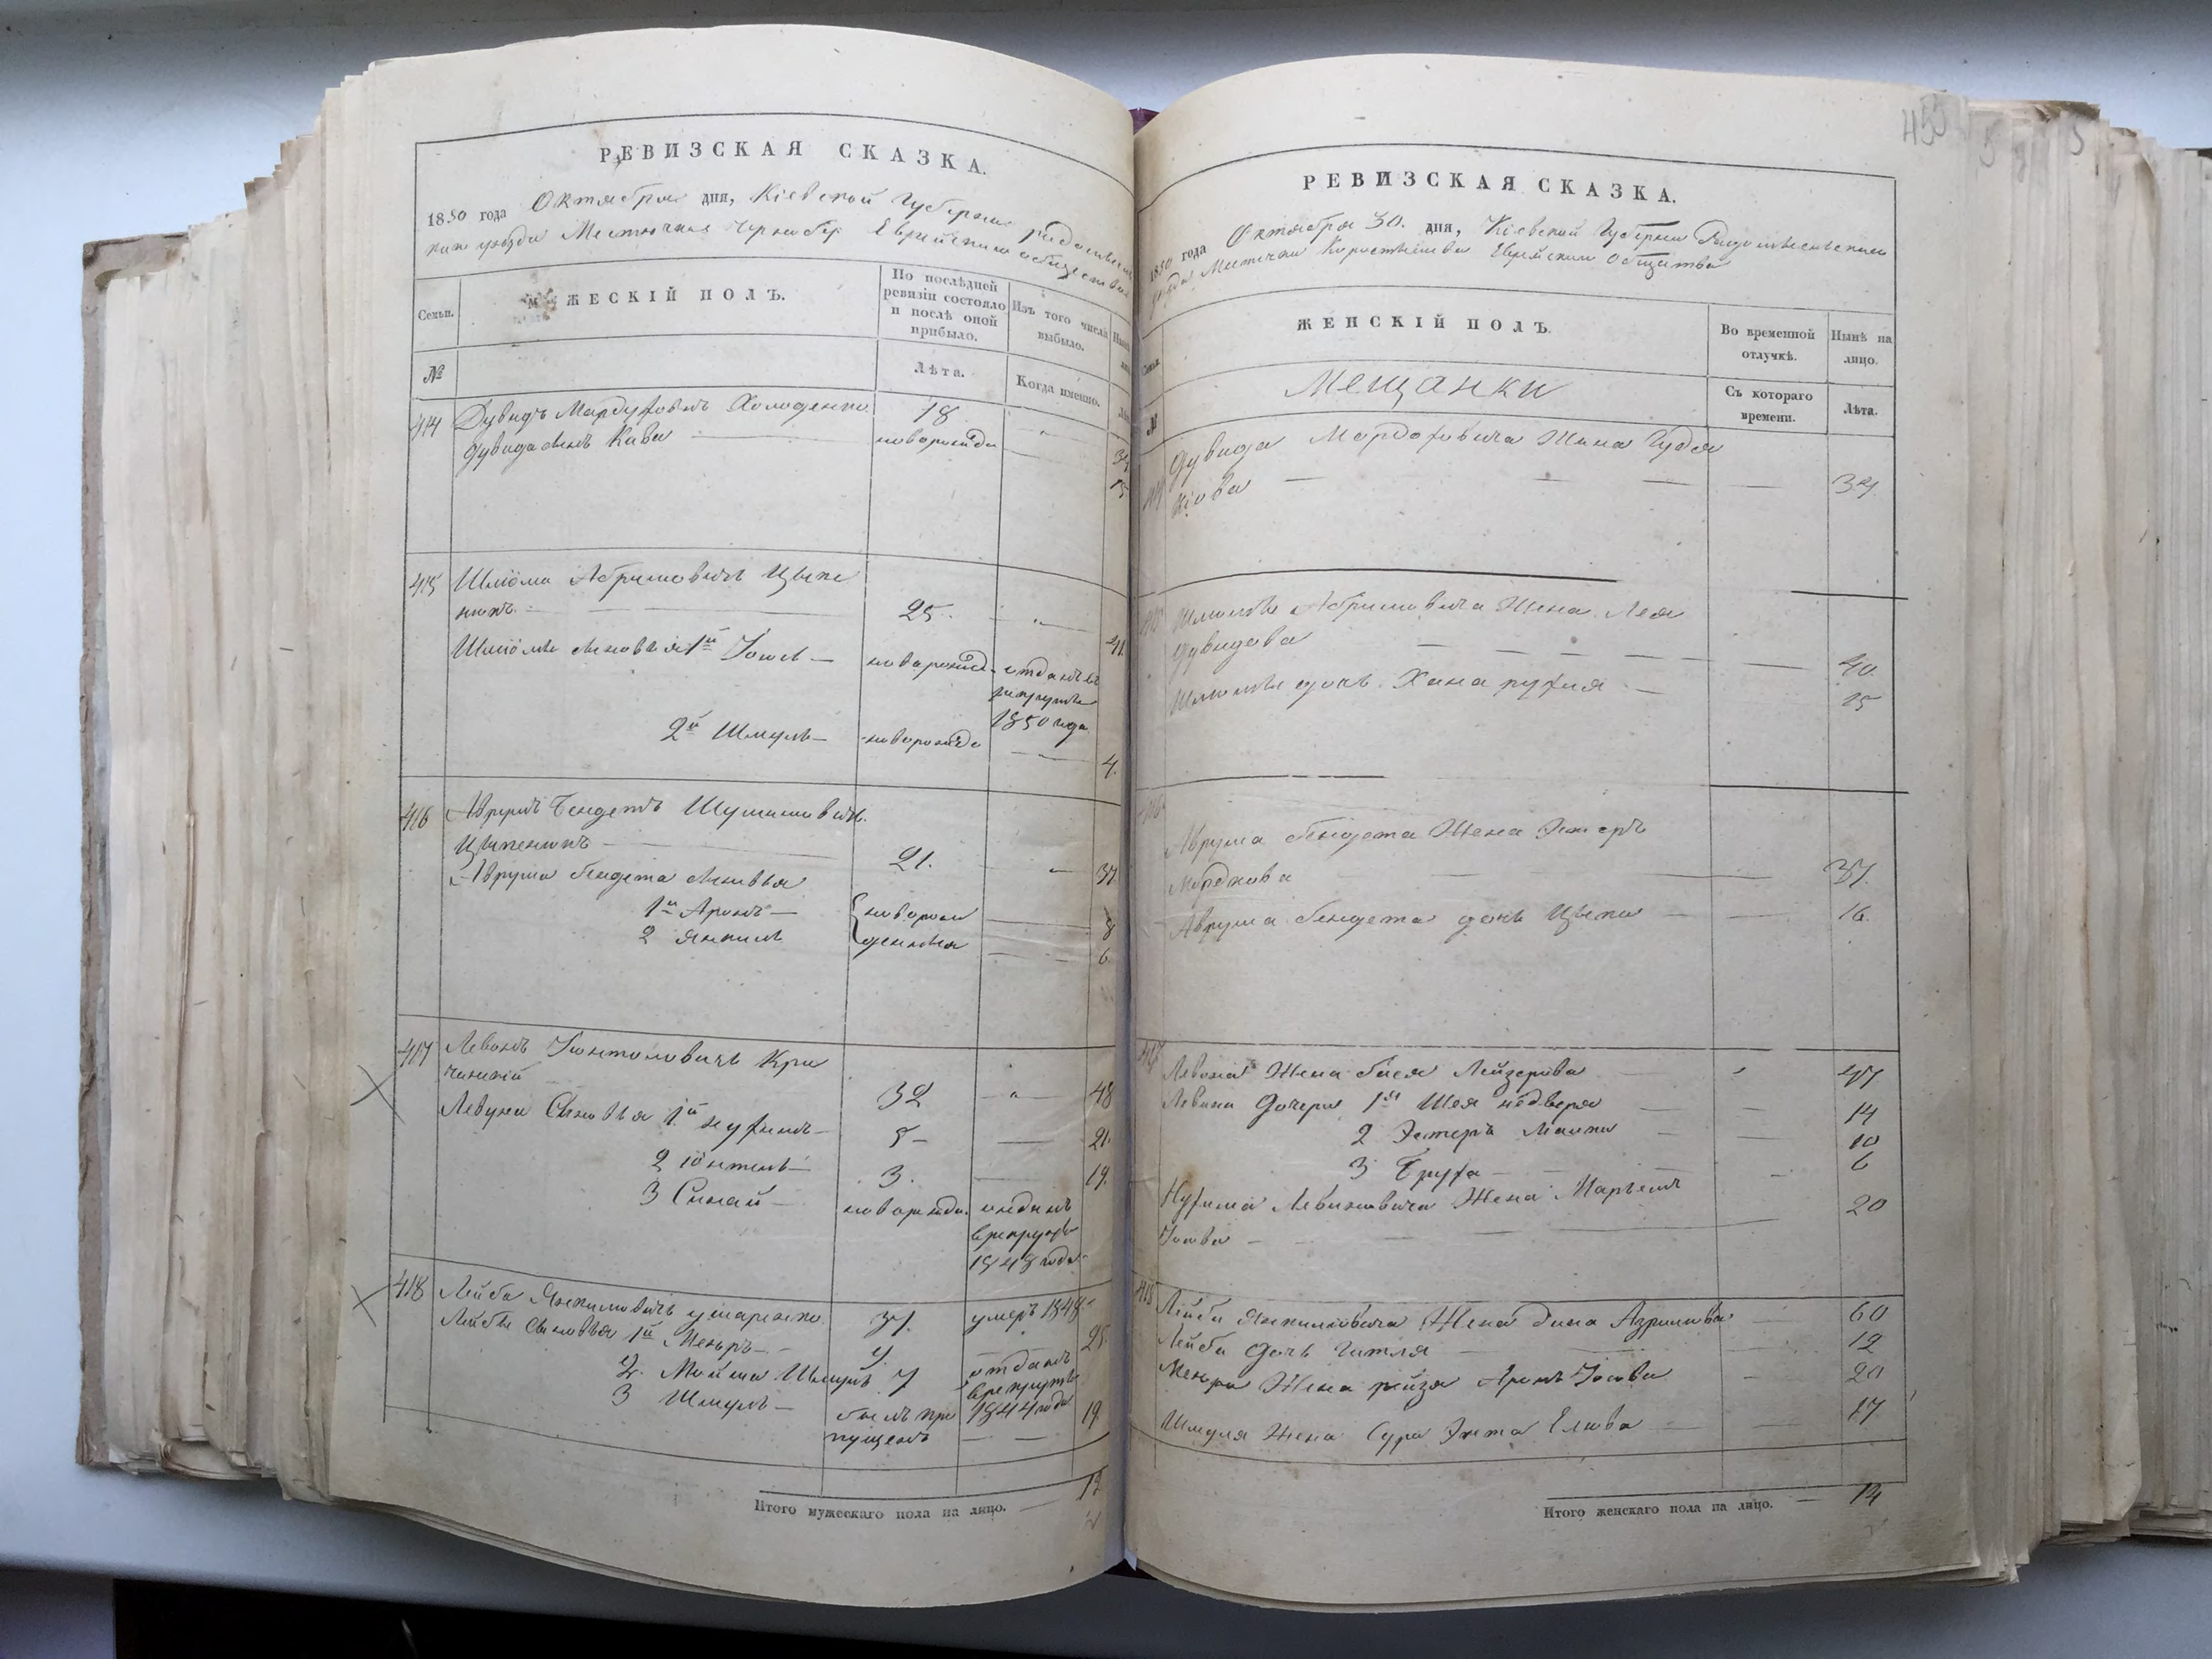 РЕВИЗСКАЯ СКАЗКА.
1850 года Октября дня, Кіевской Губерніи Радомысль
скаго уѣзда Мѣстечка Еврейскаго общества
Семьи.
МУЖЕСКІЙ ПОЛЪ.
По послѣдней ревизіи состояло и послѣ оной прибыло.
Изъ того числа выбыло.
№
Лѣта.
Когда именно.
414 Дувидъ Мордуховичъ Холоденко 18 " 34
Дувида сынъ Кива — новорожде 15
415 Шліома Абрумовичъ Цыпе
никъ — 25 " 41
Шліомы сыновья 1й Іось — новорожд отданъ въ
рекруты
1850 года
2й Шмуль — новорожде — 4.
416 Аврумъ Бендетъ Шулимовичъ
Цыпеникъ — 21. " 37
Аврума Бендета сыновья
1й Аронъ — новорож 8
2 Янкель денныя 6
417 Левонъ Іонтоловичъ Кри
чинскій 32 " 48
Левона Сыновья 1й Нухимъ — 5 — 21.
2 Іонтель — 3. — 19.
3 Синай — новорожде. отданъ
в рекруты
1848 года
418 Лейба Янкиловичъ 37. умеръ 1848
Лейбы сыновья 1й Меиръ — 9. 25
2. Мойша Шмуль 7 отданъ
в рекруты
3 Шмуль — былъ про 1844 года 19.
пущенъ — —
Итого мужескаго пола на лицо. — 12
455
РЕВИЗСКАЯ СКАЗКА.
1850 года Октября 30. дня, Кіевской Губерніи Радомысльскаго
уѣзда Мѣстечка Коростышева Еврейскаго Общества
ЖЕНСКІЙ ПОЛЪ.
Во временной отлучкѣ.
Нынѣ на лицо.
№
Мещанки
Съ котораго времени.
Лѣта.
Дувида Мордоховича Жена Гудя
Кіова — — — — 34
Шліомы Абрумовича Жена Лея
Дувидова — — — — 40.
Шліомы дочь Хана Рухля — 15
Аврума Бендета Жена Эстеръ
Мордкова — 37.
Аврума Бендета дочь Цыпа — — 16.
417 Левона Жена Бася Лейзерова 47
Левона Дочери 1я Шея 14
2 Эстеръ Малка — — 10
3 Бруха — — 6
Нухима Левоновича Жена Марьемъ
Іосева — 20
418 Лейбы Янкиловича Жена Дина Азрилова — 60
Лейбы Дочь Гитля — 12
Меира Жена Рейзя Аронъ Іосева 20
Шмуля Жена Сура Энта Еліова — 17
Итого женскаго пола на лицо. — 14